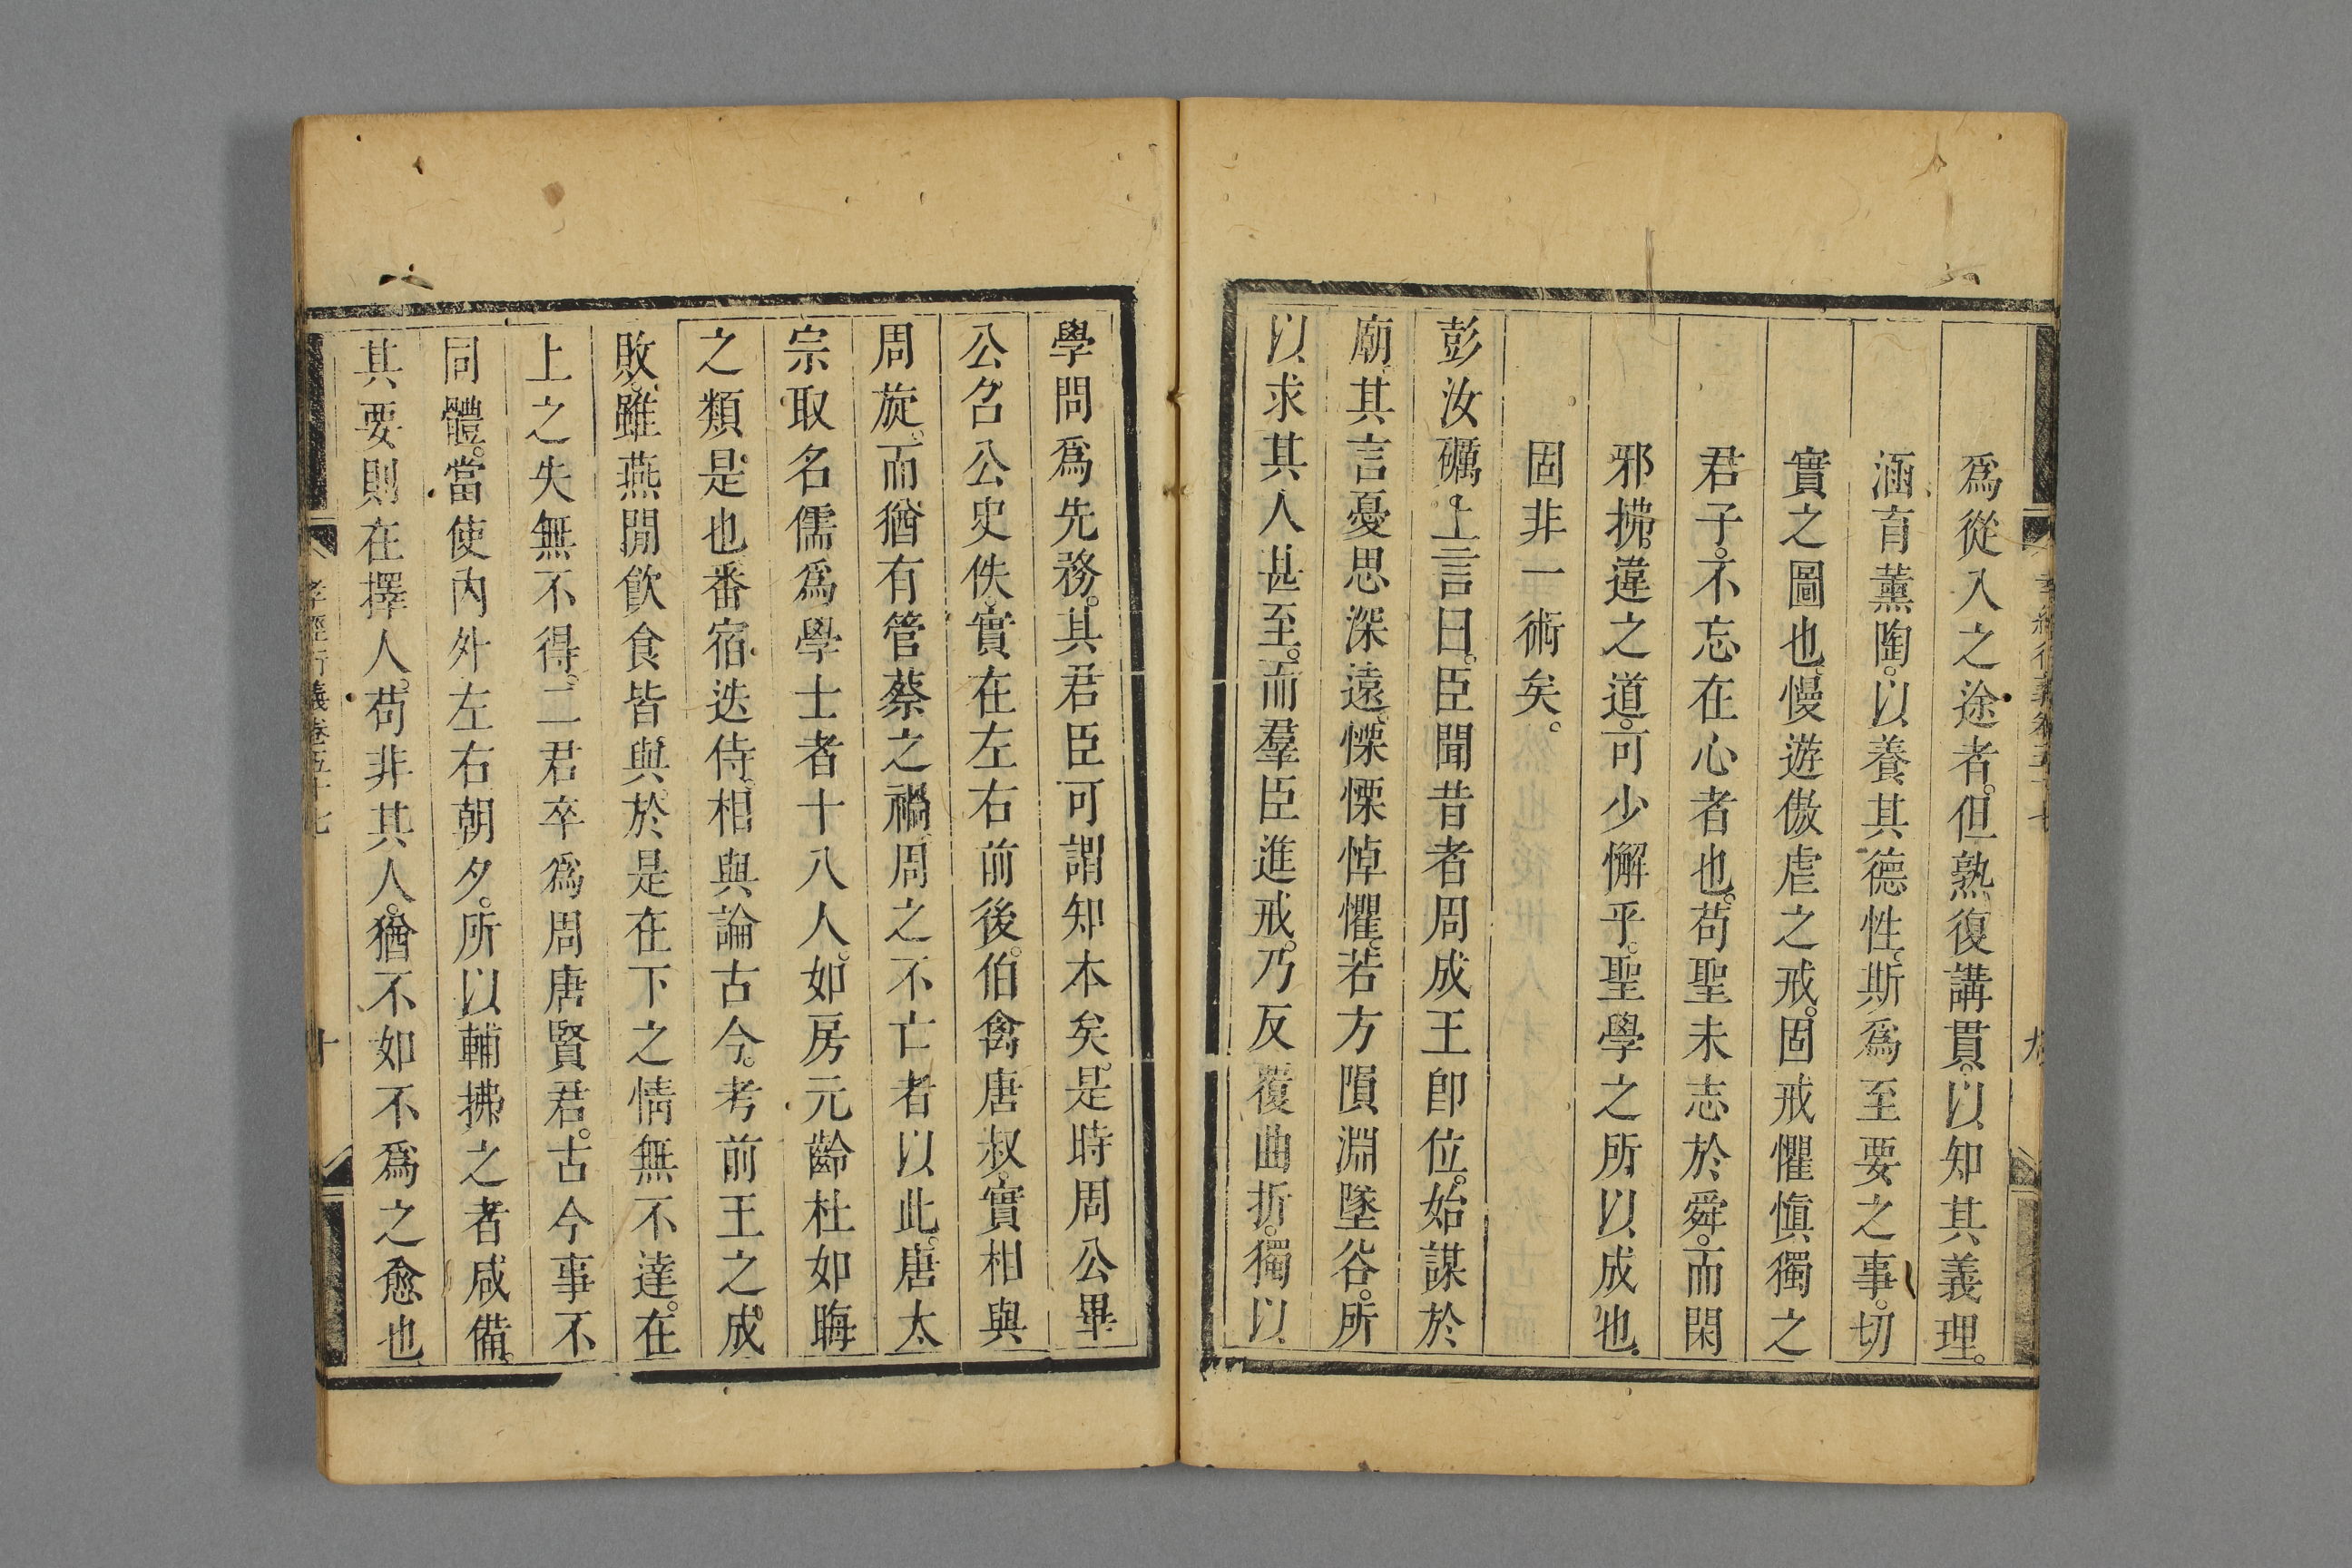 爲從入之途者。但熟復講貫。以知其義理。
涵育薰陶。以養其德性。斯爲至要之事。切
實之圖也。慢遊傲虐之戒。固戒懼愼獨之
君子。不忘在心者也。苟聖未志於舜。而閑
邪拂違之道。可少懈乎。聖學之所以成也。
固非一術矣。
彭汝礪。上言曰。臣聞昔者周成王卽位。始謀於
廟。其言憂思深遠。慄慄悼懼。若方隕淵墜谷。所
以求其人甚至。而羣臣進戒。乃反覆曲折。獨以
學問爲先務。其君臣可謂知本矣。是時周公畢
公召公史佚。實在左右前後。伯禽唐叔。實相與
周旋。而猶有管蔡之禍。周之不亡者以此。唐太
宗取名儒爲學士者十八人。如房元齡杜如晦
之類是也。番宿迭侍。相與論古今。考前王之成
敗。雖燕閒飮食皆與。於是在下之情無不達。在
上之失無不得。二君卒爲周唐賢君。古今事不
同體。當使內外左右朝夕。所以輔拂之者咸備。
其要則在擇人。苟非其人。猶不如不爲之愈也
孝經衍義卷五十七
十